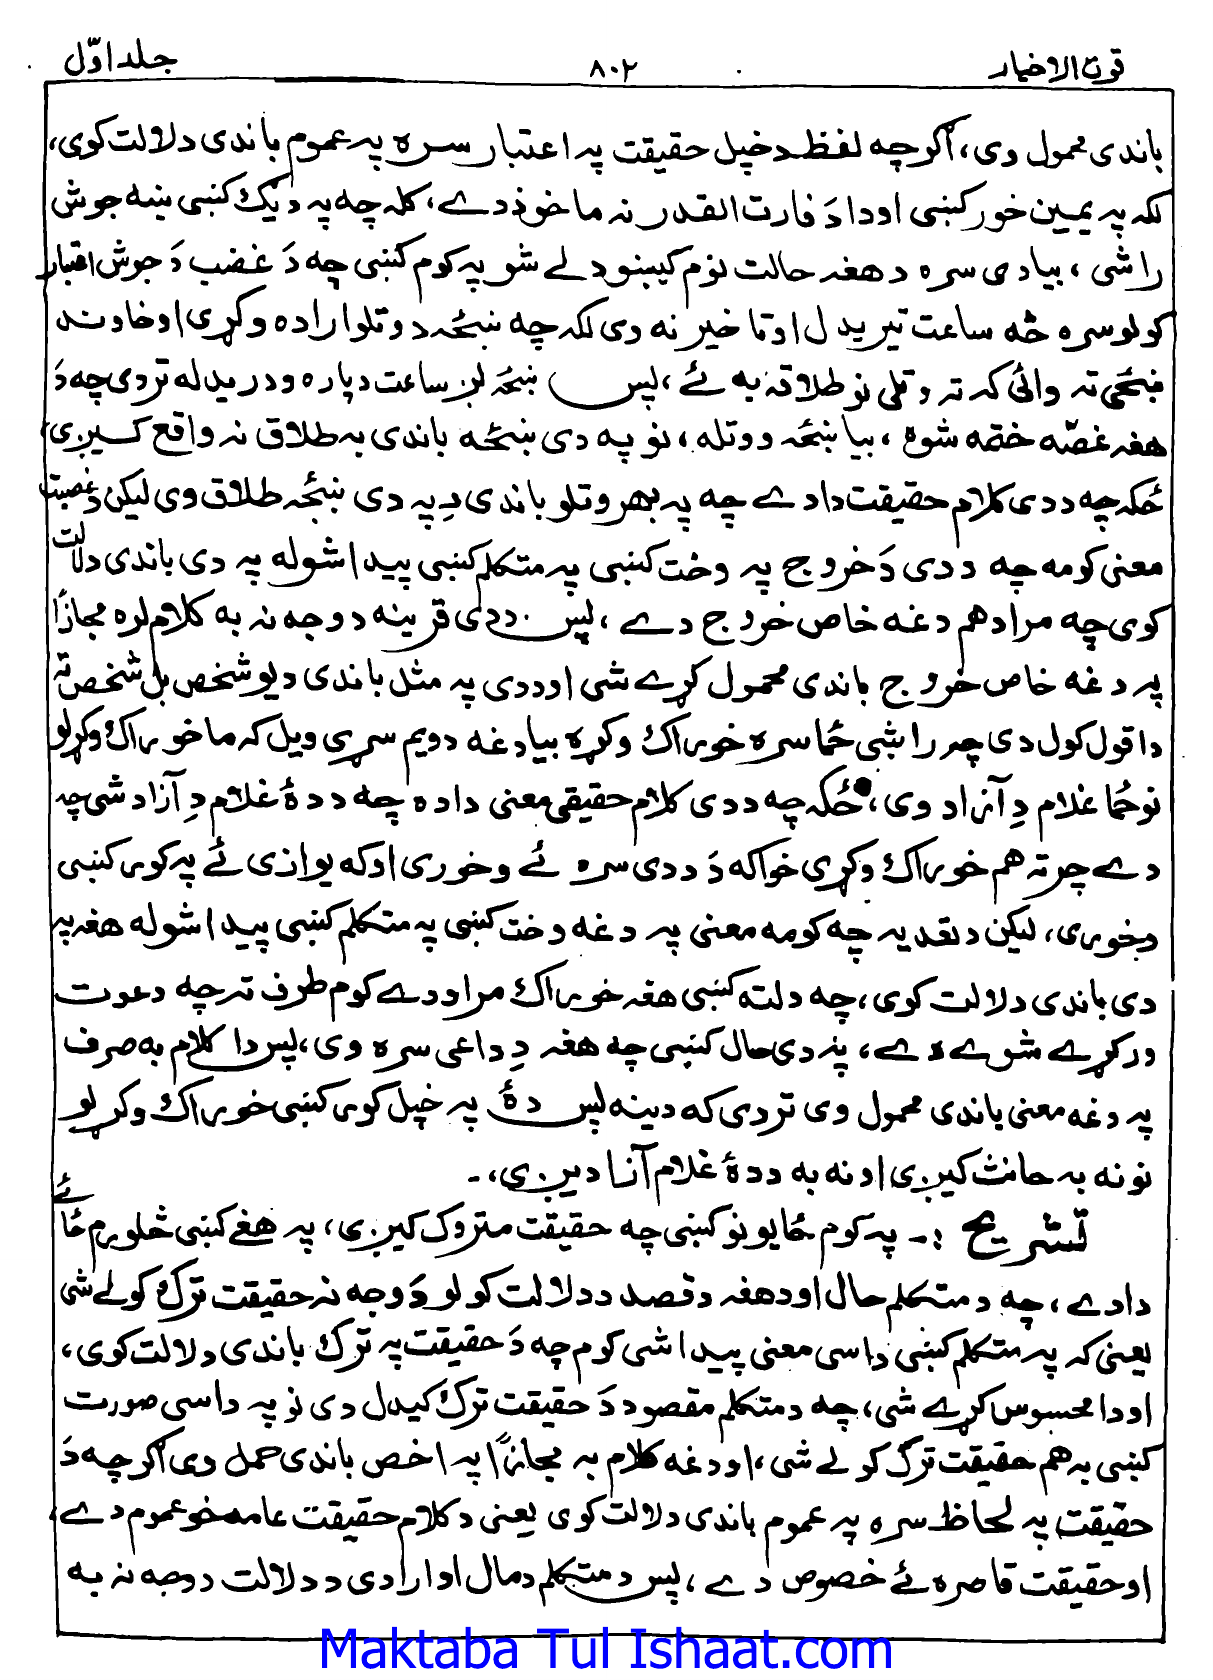 قوت الاخیار ۸۰۲ جلد اوّل
باندی محمول وی، اگرچه لفظ دخپل حقیقت په اعتبار سره په عموم باندی دلالت کوی،
لکه په یمین خور کښی اودا دَ فارت القدر نه ماخوذ دے، کله چه په دیگ کښی ښه جوش
راشی، بیا دی سره د هغه حالت نوم کیښودلے شو په کوم کښی چه دَ غضب دَ جوش اعتبار
کولو سره څه ساعت تیریدل او تاخیر نه وی لکه چه ښځه د وتلو اراده وکړی او خاوند
ښځی ته وائی که ته وتلی نو طلاقه به ئے، پس ښځه لږ ساعت دپاره ودریدله تردی چه دَ
هغه غصّه ختمه شوه، بیا ښځه ووتله، نو په دی ښځه باندی به طلاق نه واقع کیږی،
ځکه چه ددی کلام حقیقت دا دے چه په بهر وتلو باندی دِ په دی ښځه طلاق وی لیکن دَ غضب
معنی کومه چه ددی دَ خروج په وخت کښی په متکلم کښی پیدا شوله په دی باندی دلالت
کوی چه مراد هم دغه خاص خروج دے، پس ددی قرینه دوجه نه به کلام لره مجازًا
په دغه خاص خروج باندی محمول کړے شی او ددی په مثل باندی دیو شخص بل شخص ته
دا قول کول دی چه راشی ځما سره خوراک وکړه بیا دغه دویم سړی ویل که ما خوراک وکړلو
نو ځما غلام دِ آزاد وی، ځکه چه ددی کلام حقیقی معنی داده چه ددهٔ غلام دِ آزاد شی چه
دے چرته هم خوراک وکړی خواکه دَ ددی سره ئے وخوری اوکه یوازی ئے په کور کښی
وخوری، لیکن دتغدیه چه کومه معنی په دغه وخت کښی په متکلم کښی پیدا شوله هغه په
دی باندی دلالت کوی، چه دلته کښی هغه خوراک مراد دے کوم طرف ته چه دعوت
ورکړے شوے دے، په دی حال کښی چه هغه دِ داعی سره وی، پس دا کلام به صرف
په دغه معنی باندی محمول وی تردی که دینه پس دهٔ په خپل کور کښی خوراک وکړلو
نو نه به حانث کیږی اونه به ددهٔ غلام آزادیږی، ۔
تشریح :۔ په کوم ځایونو کښی چه حقیقت متروک کیږی، په هغے کښی څلورم ځائے
دادے، چه دمتکلم حال اودهغه دقصد ددلالت کولو دَ وجه نه حقیقت ترک کولے شی
یعنی که په متکلم کښی داسی معنی پیدا شی کوم چه دَ حقیقت په ترک باندی دلالت کوی،
اودا محسوس کړے شی، چه دمتکلم مقصود دَ حقیقت ترک کیدل دی نو په داسی صورت
کښی به هم حقیقت ترک کولے شی، اودغه کلام به مجازًا په اخص باندی حمل وی اگرچه دَ
حقیقت په لحاظ سره په عموم باندی دلالت کوی یعنی دکلام حقیقت عامه خو عموم دے،
اوحقیقت قاصره ئے خصوص دے، پس دمتکلم دحال او ارادی ددلالت دوجه نه به
Maktaba Tul Ishaat.com